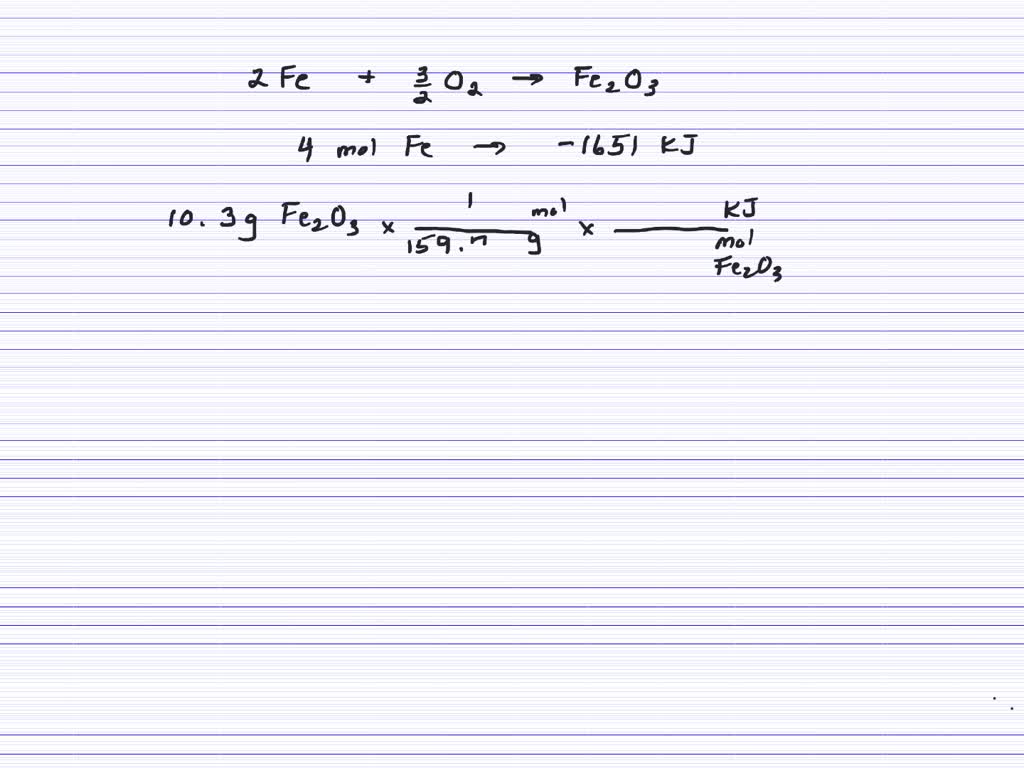 2 Fe + 3/2 O₂ → Fe₂O₃
4 mol Fe → -1651 KJ
10.3g Fe₂O₃ × 1 mol / 159.7 g × KJ / mol Fe₂O₃